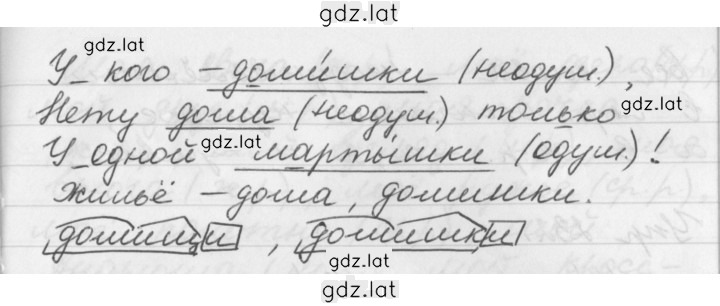 gdz.lat
gdz.lat
У кого – доми́шки (неодуш.),
Нету дома (неодуш.) только
gdz.lat
gdz.lat
У одной – марты́шки (одуш.)!
Жильё – дома, домишки.
домищи, домишки
gdz.lat
gdz.lat